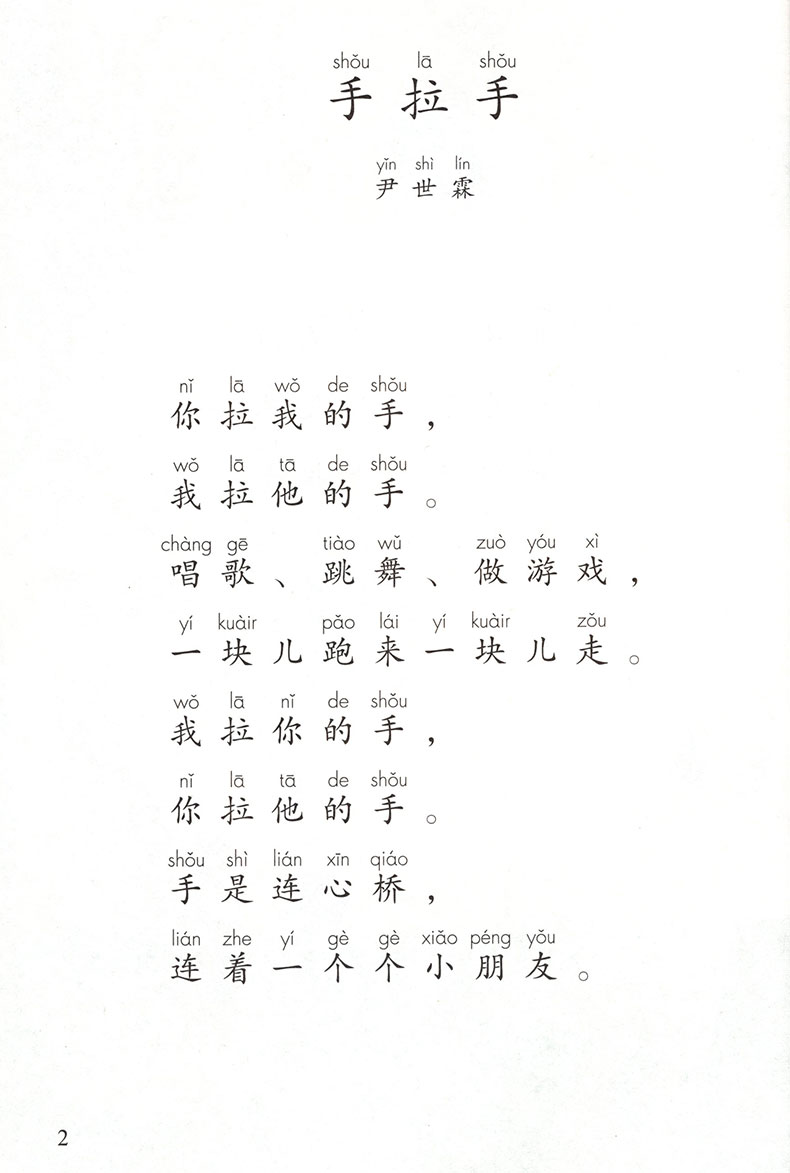 shǒu lā shǒu
手拉手
yǐn shì lín
尹世霖
nǐ lā wǒ de shǒu
你拉我的手，
wǒ lā tā de shǒu
我拉他的手。
chàng gē tiào wǔ zuò yóu xì
唱歌、跳舞、做游戏，
yí kuàir pǎo lái yí kuàir zǒu
一块儿跑来一块儿走。
wǒ lā nǐ de shǒu
我拉你的手，
nǐ lā tā de shǒu
你拉他的手。
shǒu shì lián xīn qiáo
手是连心桥，
lián zhe yí gè gè xiǎo péng yǒu
连着一个个小朋友。
2